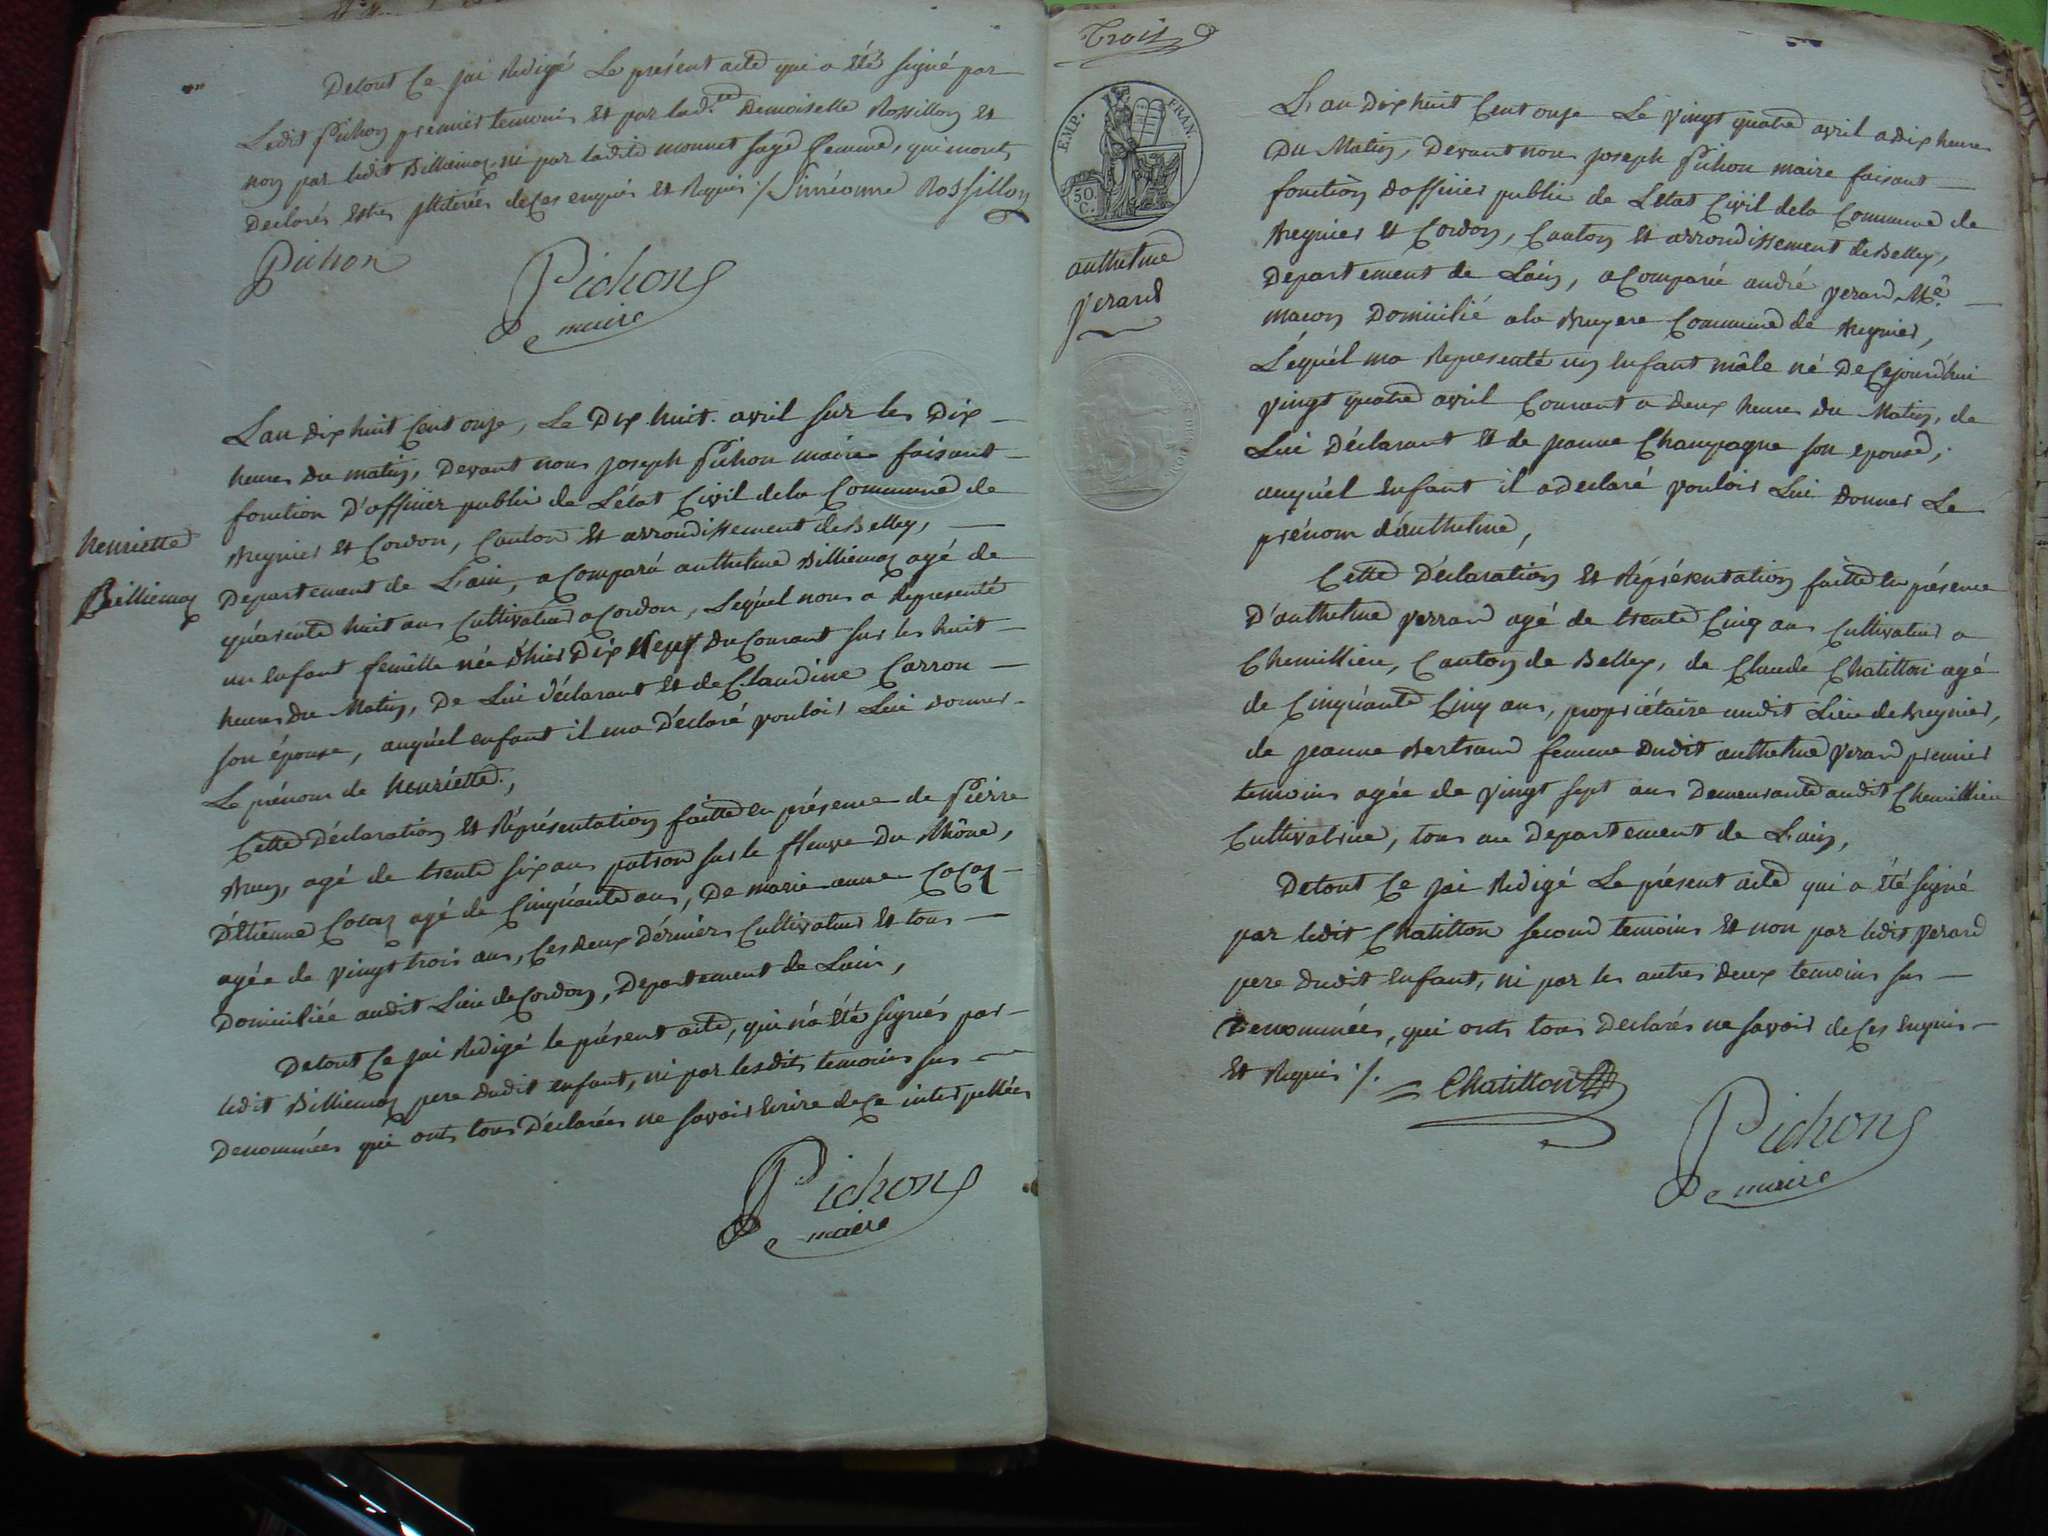 Detout Ce jai Redigé Le présent acte qui a été signé par
Ledit Pichon premier temoins Et par lad.te Demoiselle Rossillon Et
non par ledit Billiemaz ni par ladite monnet sage femme, qui mont
Declarés Estre illiterées de Ces enquis Et Requis ./. Siméonne Rossillon
Pichon
Pichon
maire
Lan dix huit Cent onze, Le Dix huit avril sur les Dix
heures du matin, Devant nous joseph Pichon maire faisant
fonction D'officier public de L'état Civil dela Commune de
Bregnier Et Cordon, Canton Et arrondissement de Belley,
Departement de Lain, a Comparu anthelme Billiemaz agé de
quarante huit ans Cultivateur a Cordon, Lequel nous a Representé
un enfant femelle née d'hier Dix Neuf du Courant sur les huit
heures du Matin, De Lui déclarant Et de Claudine Carron
son épouse, auquel enfant il ma Déclaré vouloir Lui donner
Le prénom de henriette,
henriette
Billiemaz
Cette Déclaration Et Réprésentation faitte en présence de Pierre
Brun, agé de trente six ans patron sur le fleuve du Rhône,
D'Etienne Cocaz agé de Cinquante ans, De marie anne Cocaz
agée de vingt trois ans, Ces deux Dérniérs Cultivateurs Et tous
Domiciliée audit Lieu de Cordon, Departement de Lain,
Detout Ce jai Redigé le présent acte, qui n'a été signés par
ledit Billiemaz pere dudit enfant, ni par lesdits temoins sus
Denommées qui ont tous Déclarées ne savoir Ecrire de Ce interpellées
Pichon
maire
Trois
EMP. FRAN.
50 C.
anthelme
verard
Lan Dix huit Cent onze Le vingt quatre avril a dix heures
Du Matin, Devant nous joseph Pichon maire faisant
fonction d'officier public de L'état Civil dela Commune de
Bregnier Et Cordon, Canton Et arrondissement de Belley,
Departement de Lain, a Comparu andré verard M.e
macon Domicilié a la Bruyere Commune de Bregnier,
Léquél ma Representé un enfant mâle né De Cejourdhui
vingt quatre avril Courant a deux heures du Matin, de
Lui Déclarant Et de jeanne Champagne son epouse,
auquél enfant il a declaré vouloir Lui donner Le
prénom d'anthelme,
Cette Déclaration Et Réprésentation faitte en présence
D'anthelme verrard agé de trente Cinq ans Cultivateur a
Chemillieu, Canton de Belley, de Claude Chatillon agé
de Cinquante Cinq ans, propriétaire audit Lieu de Bregnier,
de jeanne Bertrand femme dudit anthelme verard premier
temoins agée de vingt sept ans Demeurante audit Chemillieu
Cultivatrice, tous au Departement de Lain,
Detout Ce jai Redigé Le présent acte qui a été signé
par ledit Chatillon second temoins Et non par ledit verard
pere dudit enfant, ni par les autres deux temoins sus
Denommées, qui ont tous Declarés ne savoir de Ces Enquis
Et Requis ./.
Chatillon
Pichon
maire